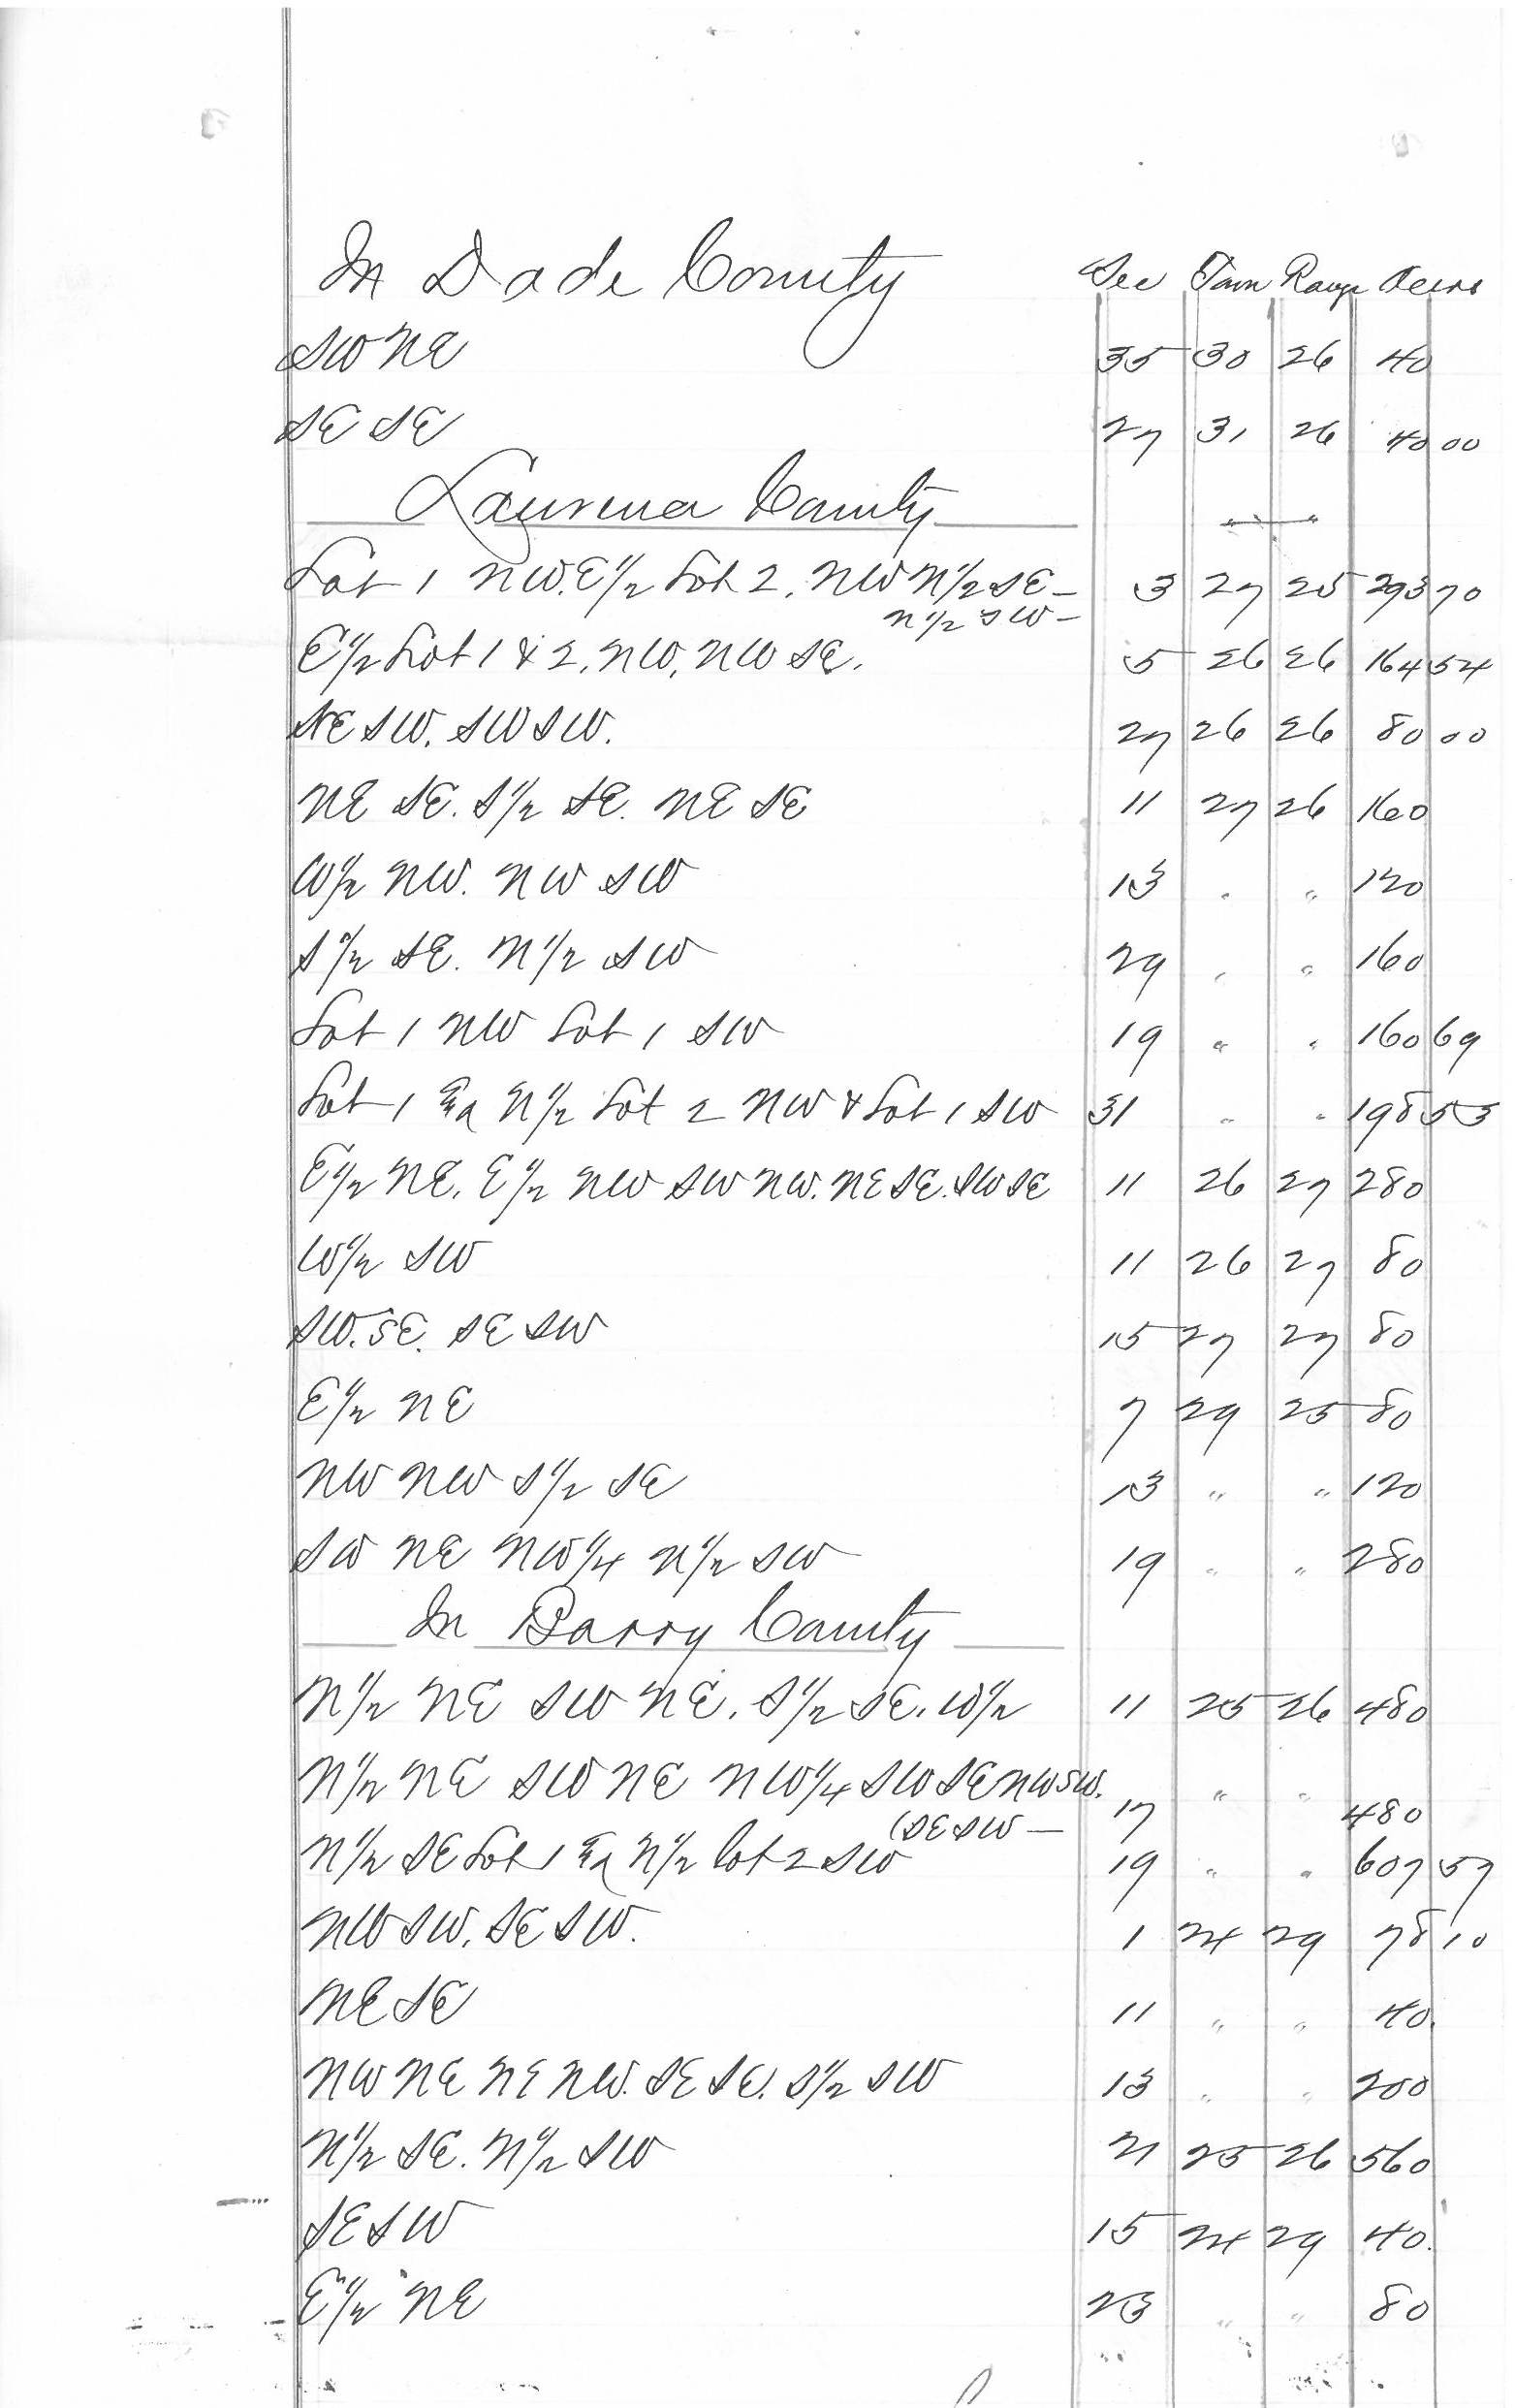 In Dade County Sec Town Range Acres
SW NE 35 30 26 40
SE SE 27 31 26 40 00
Laurence County
Lot 1 NW. E 1/2 Lot 2. NW N 1/2 SE - 3 27 25 293 70
N 1/2 SW -
E 1/2 Lot 1 & 2, NW, NW SE. 5 26 26 164 54
NE SW. SW SW. 27 26 26 80 00
NE SE. S 1/2 SE. NE SE 11 27 26 160
W 1/2 NW. NW SW 13 " " 120
S 1/2 SE. N 1/2 SW 29 " " 160
Lot 1 NW Lot 1 SW 19 " " 160 69
Lot 1 N 1/2 Lot 2 NW & Lot 1 SW 31 " " 198 53
E 1/2 NE. E 1/2 NW SW NW. NE SE. SW SE 11 26 27 280
W 1/2 SW 11 26 27 80
SW. SE. SE SW 15 27 27 80
E 1/2 NE 7 29 25 80
NW NW S 1/2 SE 13 " " 120
SW NE NW 1/4 N 1/2 SW 19 " " 280
In Barry County
N 1/2 NE SW NE. S 1/2 SE. W 1/2 11 25 26 480
N 1/2 NE SW NE NW 1/4 SW SE NW SW. 17 " " 480
(SE SW -
N 1/2 SE Lot 1 N 1/2 lot 2 SW 19 " " 607 57
NW SW. SE SW. 1 24 29 78 10
NE SE 11 " " 40.
NW NE NE NW. SE SE. S 1/2 SW 13 " " 200
N 1/2 SE. N 1/2 SW 21 25 26 560
SE SW 15 24 29 40.
E 1/2 NE 23 " " 80